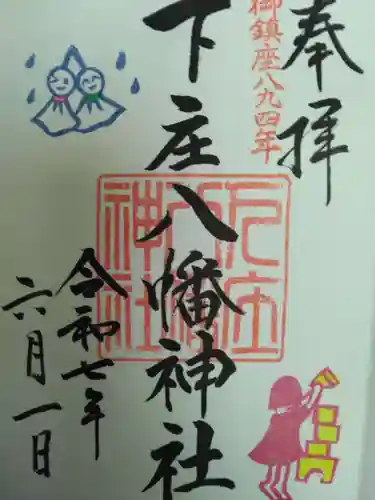 奉拝
御鎮座八九四年
下庄八幡神社
令和七年
六月一日